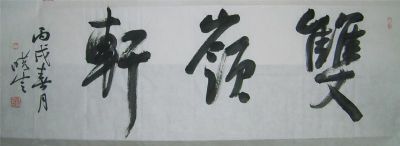 雙嶺軒
丙戌春月